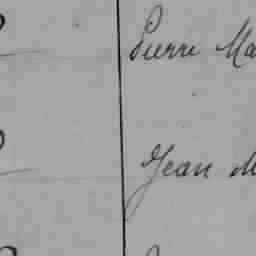 Pierre Ma
Jean M